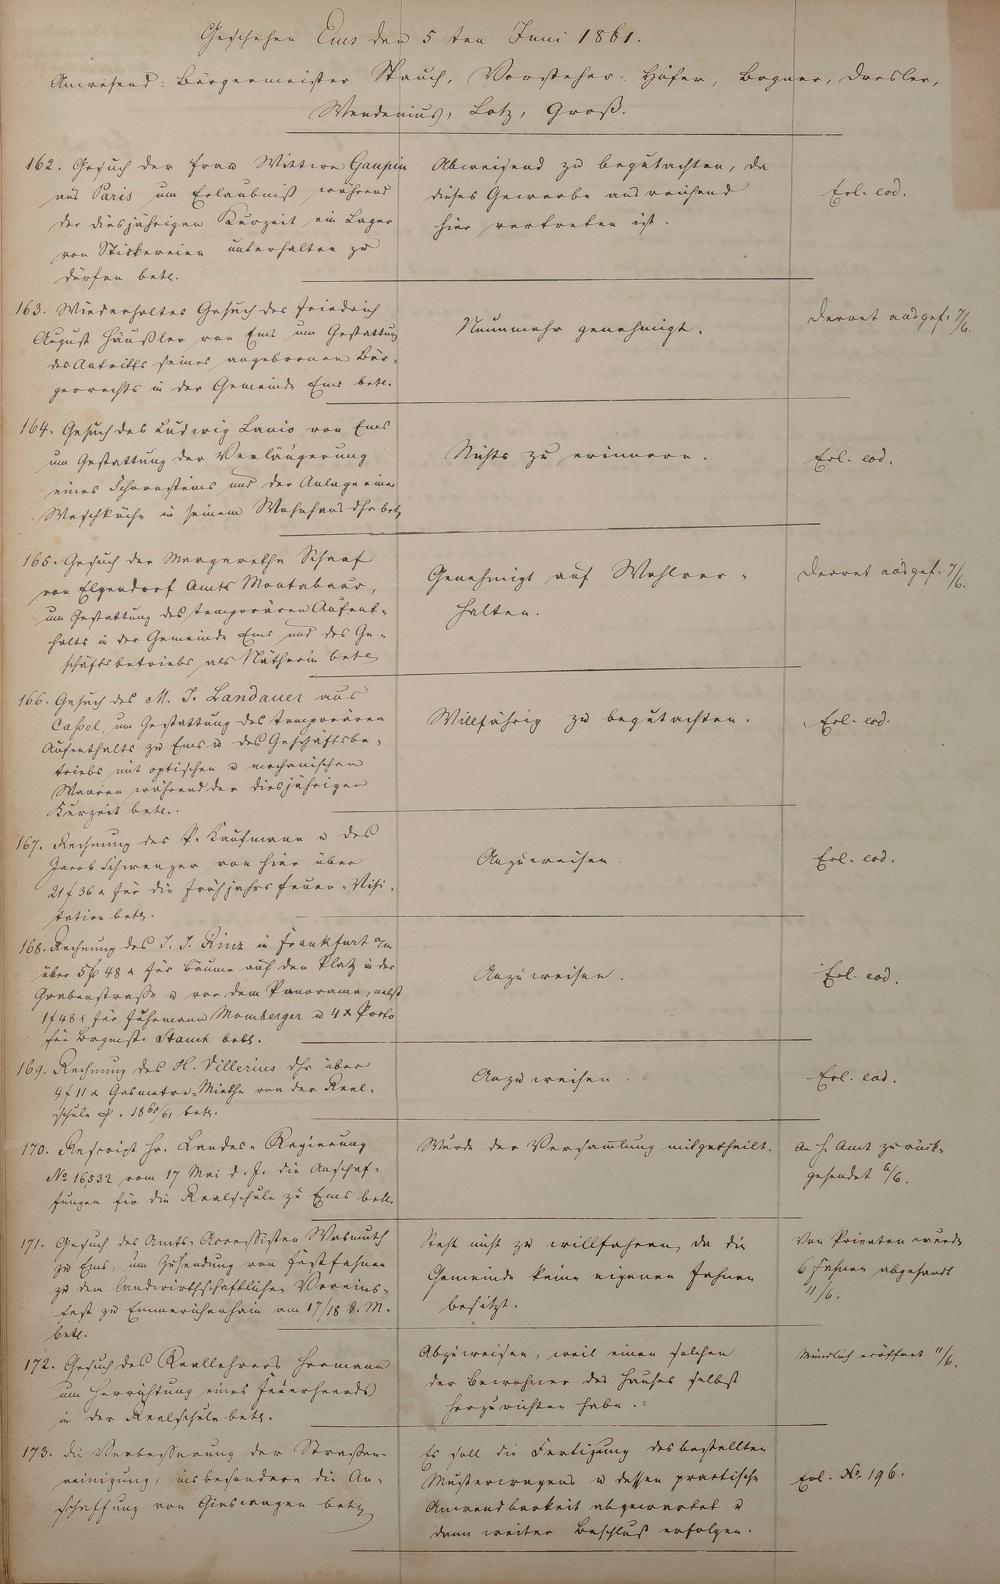 Geschehen Ems den 5ten Juni 1861.
Anwesend: Bürgermeister Spauch, Vorsteher: Höfer, Bogner, Dresler,
Wendenius, Lotz, Groß.
162. Gesuch der Frau Wittwe Gaupin
aus Paris um Erlaubniß während
der diesjährigen Kurzeit ein Lager
von Stickereien unterhalten zu
dürfen betr.
Abweisend zu begutachten, da
dieses Gewerbe ausreichend
hier vertreten ist.
Erl. eod.
163. Wiederholtes Gesuch des Friedrich
August Häußler von Ems um Gestattung
des Antritts seines angebornen Bür-
gerrechts in der Gemeinde Ems betr.
Nunmehr genehmigt.
Decret ausgef. 7/6.
164. Gesuch des Ludwig Lanio von Ems
um Gestattung der Verlängerung
eines Schornsteins und der Anlage einer
Waschküche in seinem Wohnhaus dhr betr
Nichts zu erinnern.
Erl. eod.
165. Gesuch der Margarethe Schaaf
von Elgendorf Amts Montabaur,
um Gestattung des temporären Aufent-
halts in der Gemeinde Ems und des Ge-
schäftsbetriebs als Nätherin betr
Genehmigt auf Wohlver-
halten.
Decret ausgef. 7/6.
166. Gesuch des M. J. Landauer aus
Cassel, um Gestattung des temporären
Aufenthalts zu Ems u des Geschäftsbe-
triebs mit optischen u mechanischen
Waaren während der diesjährigen
Kurzeit betr.
Willfährig zu begutachten.
Erl. eod.
167. Rechnung des P. Kaufmann u des
Jacob Schwenzer von hier über
21 f 36 x für die Frühjahrs Feuer-Visi-
tation betr.
Anzuweisen.
Erl. eod.
168. Rechnung des J. J. Rinz in Frankfurt a/m
über 5 f 48 x für Bäume auf den Platz in der
Grabenstraße u vor dem Panorama, nebst
1 f 48 x für Fuhrmann Momberger u 4 x Porto
für Bogmstr. Stamt betr.
Anzuweisen.
Erl. eod.
169. Rechnung des H. Villerius dhr über
4 f 11 x Gasmeter-Miethe von der Real-
schule p. 1860/61 betr.
Anzuweisen.
Erl. eod.
170. Rescript Hr. Landes-Regierung
No 16,532 vom 17 Mai d. J. die Anschaf-
fungen für die Realschule zu Ems betr.
Wurde der Versammlung mitgetheilt.
An H. Amt zurück-
gesendet 6/6.
171. Gesuch des Amts-Accessisten Wasmuth
zu Ems, um Zusendung von Festfahnen
zu dem landwirthschaftlichen Vereins-
fest zu Emmerichenhain am 17/18 d. M.
betr.
Steht nicht zu willfahren, da die
Gemeinde keine eigenen Fahnen
besitzt.
Von Privaten wurde
6 Fahnen abgesandt
11/6.
172. Gesuch des Reallehrers Hermann
um Herrichtung eines Feuerheerds
in der Realschule betr.
Abzuweisen, weil einen solchen
der Bewohner des Hauses selbst
herzurichten habe.
Mündlich eröffnet 11/6.
173. Die Verbesserung der Straßen-
reinigung, insbesondere die An-
schaffung von Gieswagen betr
Es soll die Fertigung des bestellten
Musterwagens u dessen practische
Anwendbarkeit abgewartet u
dann weiter Beschluß erfolgen.
Erl. No. 196.